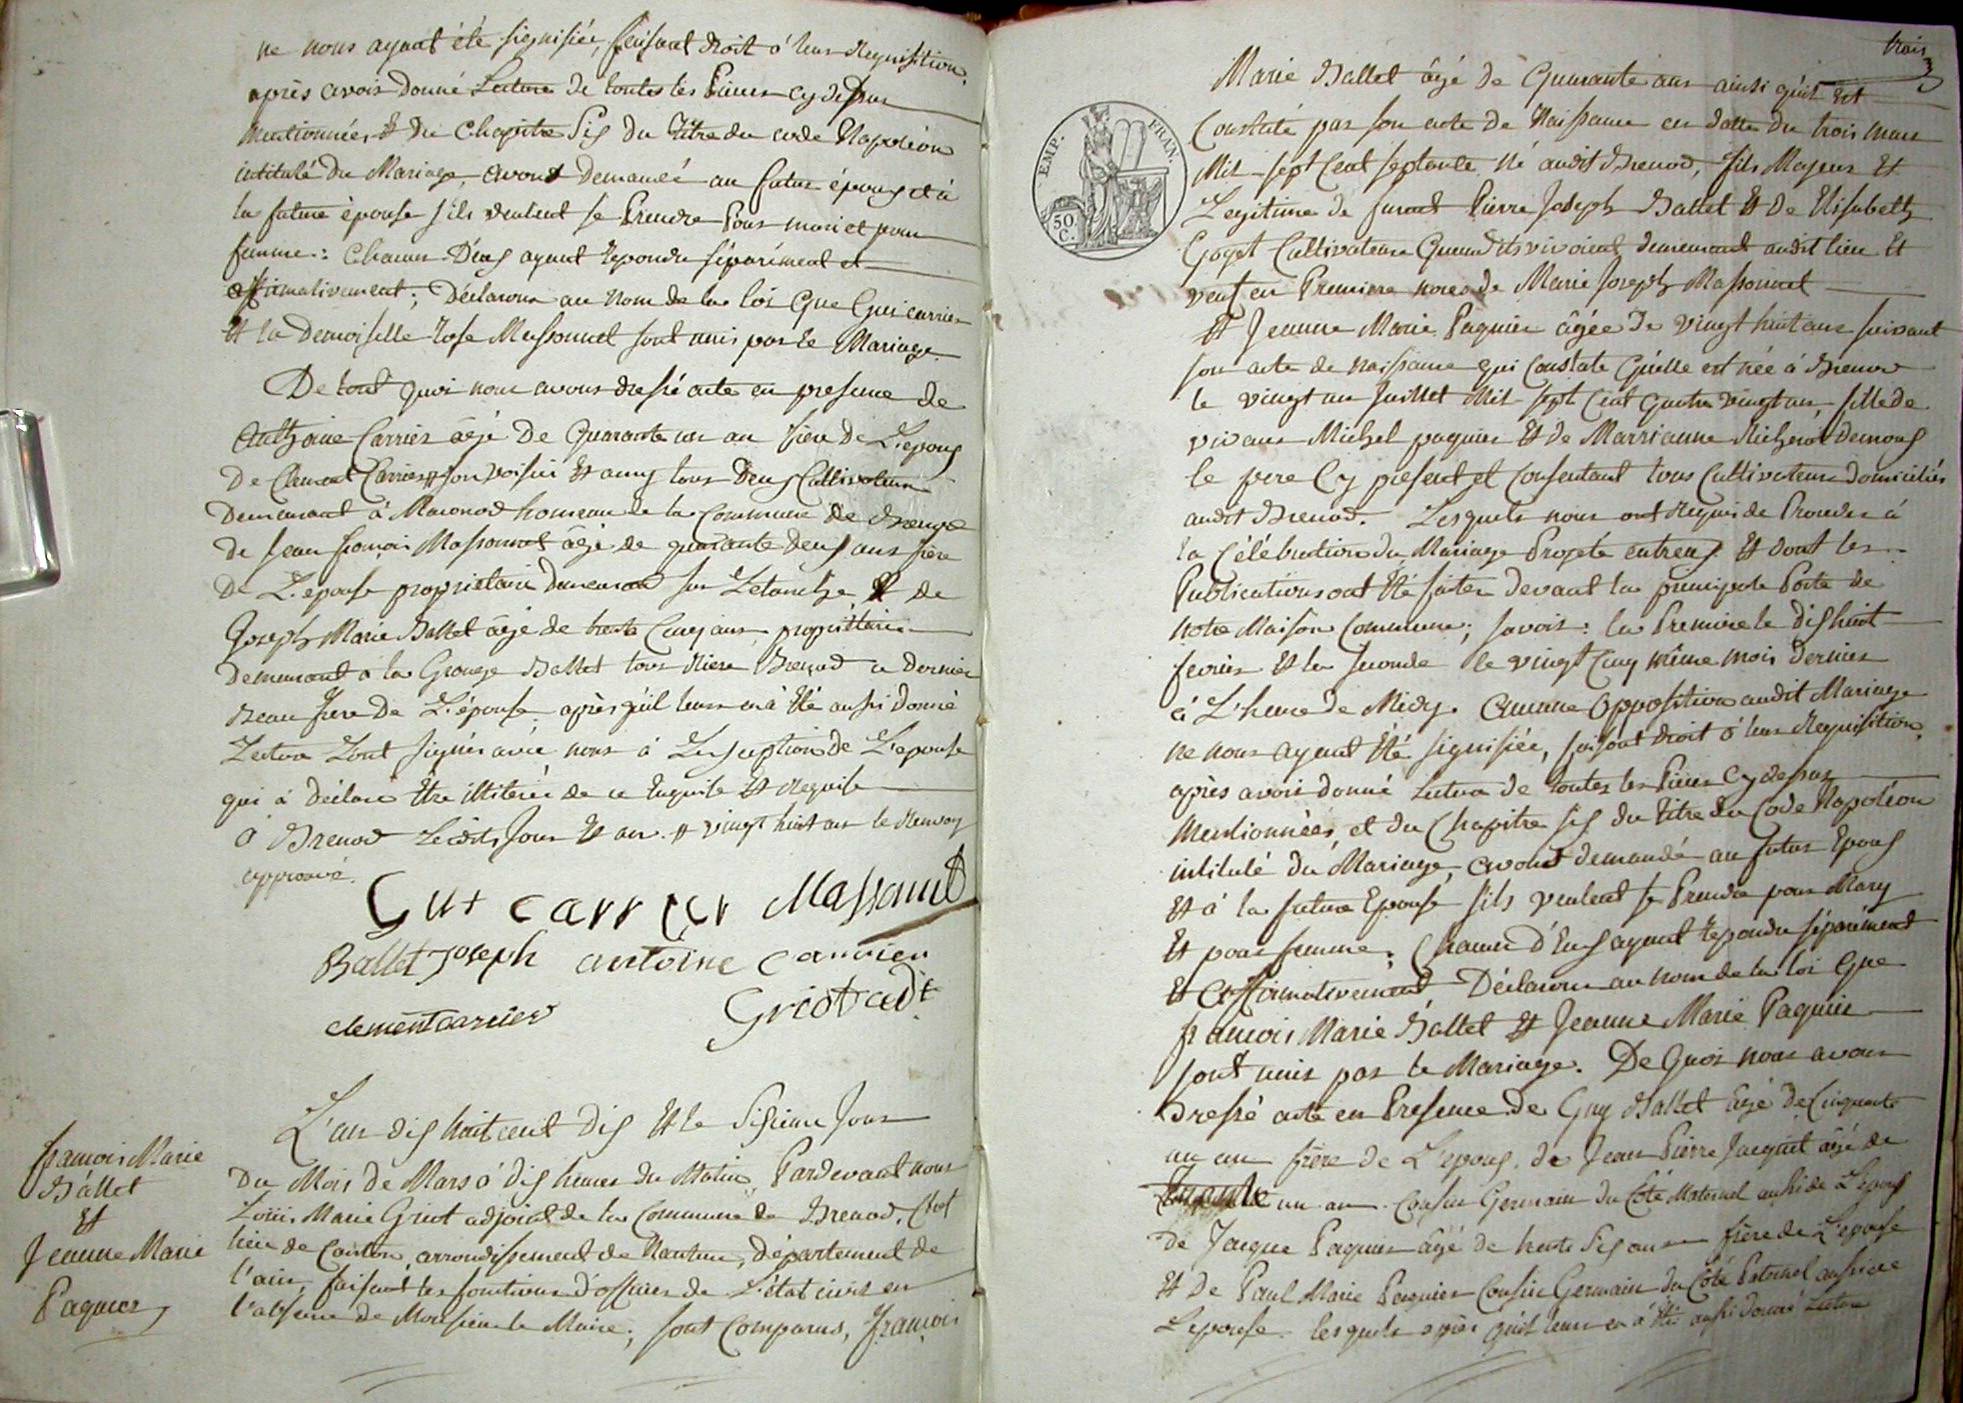 ne nous ayant été signifiée, faisant droit à leur Requisition,
après avoir donné Lecture de toutes les Pieces cy dessus
mentionnées, et du Chapitre Six du titre du code Napoléon
intitulé Du Mariage, avons Demandé au futur époux et à
la future épouse s'ils veulent se Prendre Pour mari et pour
femme: Chacun D'eux ayant Repondu séparément et
affirmativement; Déclarons au Nom de la loi Que Gui carrier
Et la Demoiselle Rose Massonnet sont unis par le Mariage
De tout quoi nous avons dressé acte en presence de
Anthoine Carrier agé De Quarante un an frere de L'epoux
De Clement Carrier # son voisin Et amy tous Deux Cultivateurs
Demeurant à Maconod hameau de la Commune de Brenod
de Jean françois Massonnet âgé de quarante deux ans frere
De L'epouse propriétaire demeurant sur Letanche Et de
Joseph Marie Ballet âgé de trente Cinq ans propriétaire
demeurant à la Grange Ballet tous Riere Brenod ce dernier
Beau frere De L'épouse, après qu'il leur en à été aussi donné
Lecture L'ont signés avec nous à L'exception de L'epouse
qui à Déclaré Etre illiterée de ce Enquise Et Requise
à Brenod Lesdits Jour Et an. # vingt huit ans le Renvoy
approuvé.
Gui carrier Massonnet
Ballet Joseph antoine carrier
clement carrier Griot adjt
françois Marie
Ballet
Et
Jeanne Marie
Paquier
L'an dix huit cent Dix Et le Sixieme Jour
Du Mois de Mars à dix heures du Matin, Pardevant nous
Louis Marie Griot adjoint de la Commune de Brenod, Chef
lieu de Canton, arrondissement de Nantua, Département de
l'ain, faisant les fonctions d'officier de L'état civil en
l'absence de Monsieur le Maire; sont Comparus, François
trois
3
EMP. FRAN.
50 C.
Marie Ballet âgé de Quarante ans ainsi qu'il Est
Constaté par son acte de Naissance en datte du trois mars
Mil sept Cent septante né audit Brenod, fils Majeur Et
Legitime de furent Pierre Joseph Ballet Et De Elisabeth
Goget Cultivateurs Quand ils vivoient demeurant audit lieu Et
veuf en Premiere noces de Marie Joseph Massonnet
Et Jeanne Marie Paquier âgée De vingt huit ans suivant
son acte de naissance qui Constate Qu'elle est née à Brenod
le vingt un Juillet Mil sept Cent Quatre vingt un, fille de
vivans Michel paquier Et de Marrianne Richerot demoux
le pere Cy présent et Consentant tous Cultivateurs Domiciliés
audit Brenod. Lesquels nous ont Requis de Proceder à
la Célébration du Mariage Projeté entreux Et dont les
Publications ont Eté faites devant la principale Porte de
Notre Maison Commune; savoir: la Premiere le dix huit
fevrier Et la Seconde le vingt Cinq même mois dernier
à L'heure de Midy. Aucune Opposition audit Mariage
ne nous ayant Eté signifiée, faisant droit à leur Requisition,
après avoir donné Lecture de toutes les Pieces Cy dessus
Mentionnées, et du Chapitre six du titre du Code Napoléon
intitulé du Mariage, avons demandé au futur Epoux
Et à la future Epouse s'ils veulent se Prendre pour Mary
Et pour femme; Chacun d'Eux ayant Repondu séparément
Et Affirmativement, Déclarons au nom de la loi Que
françois Marie Ballet Et Jeanne Marie Paquier
sont unis par le Mariage. De Quoi nous avons
Dressé acte en Presence de Guy Ballet âgé de Cinquante
un an frère de L'epoux, de Jean Pierre Jacquet âgé de
un an Cousin Germain du Coté Maternel aussi de L'epoux
De Jacque Paquier âgé de trente six ans frère de L'epouse
Et De Paul Marie Paquier Cousin Germain du Côté Paternel aussi de
L'epouse. lesquels après Qu'il leur en à été aussi donné Lecture